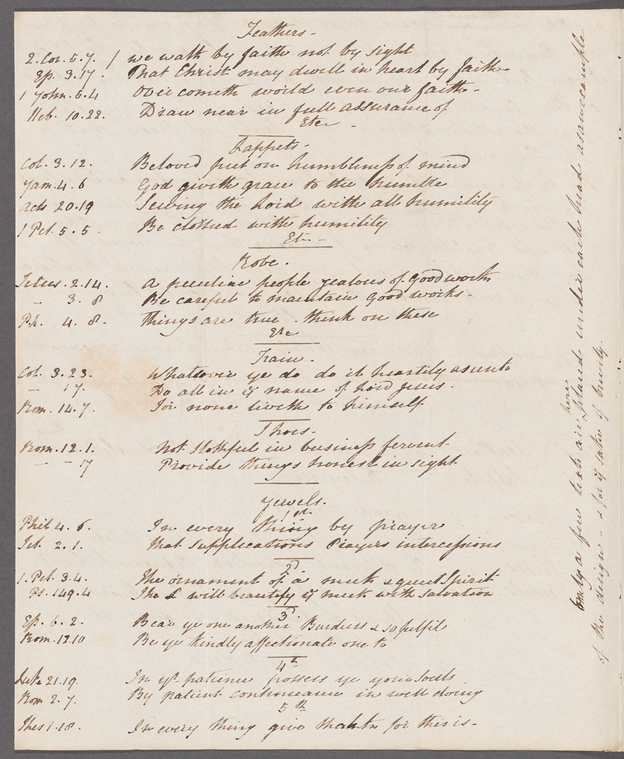 Feathers-
2. Cor. 5.7. / we walk by faith not by sight
Ep. 3.17. That Christ may dwell in heart by faith-
1 John. 5.4 Overcometh world even our faith-
Heb. 10.22. Draw near in full assurance of
Etc-
Lappets-
Col. 3.12. Beloved put on humbleness of mind
Jam. 4.6 God giveth grace to the humble
Acts 20.19 Serving the Lord with all humility
1 Pet. 5.5 Be clothed with humility
Etc-
Robe.
Titus. 2.14. a peculiar people zealous of good works
- 3.8 Be careful to maintain good works-
Ph. 4.8. Things are true. think on these
Etc
Train.
Col. 3.23. Whatsoever ye do do it heartily as unto
- 17. Do all in ye name of Lord Jesus.
Rom. 14.7. For none liveth to himself
Shoes.
Rom. 12.1. Not slothful in business fervent
- - 17 Provide things honest in sight
Jewels.
1st
Phil 4.6. In every thing by prayer
Tit. 2.1. That supplications Prayers intercessions
2d
1. Pet. 3.4. The ornament of a meek & quiet Spirit
Ps. 149.4 The L will beautify ye meek with salvation
3d
Ep. 6.2. Bear ye one another Burdens & so fulfil
Rom. 12.10 Be ye kindly affectionate one to
4th
Luke 21.19. In yr patience possess ye your souls
Rom 2.7. By patient continuance in well doing
5th
Thes 1.18. In every thing give thanks for this is-
Only a few texts are here placed under each head as an example
of the design - & for ye sake of brevity.